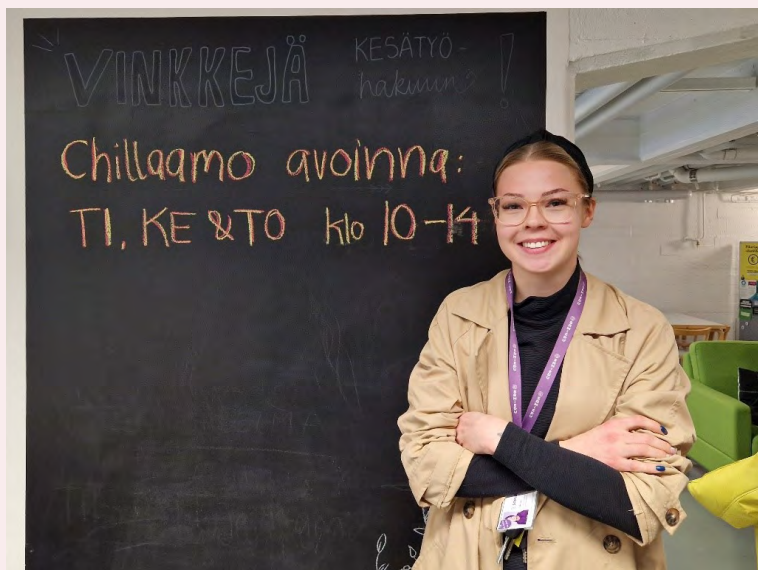 VINKKEJÄ
KESÄTYÖ-
hakuun?!
Chillaamo avoinna:
TI, KE & TO klo 10-14